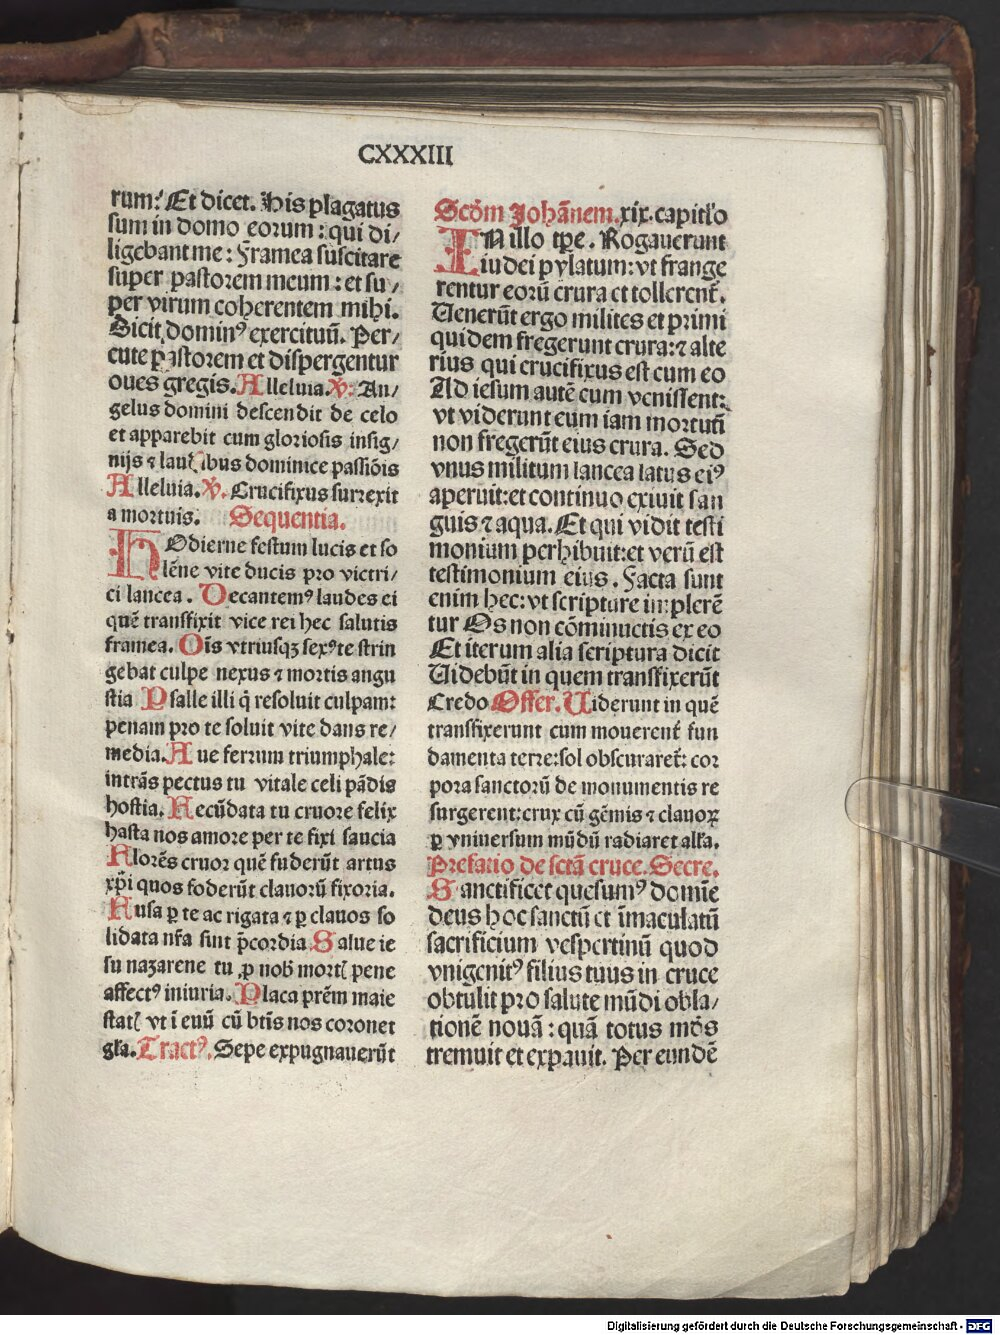 CXXXIII
rum: Et dicet. His plagatus
sum in domo eorum: qui di/
ligebant me: Framea suscitare
super pastorem meum: et su/
per virum coherentem mihi.
Dicit dominꝰ exercituū. Per/
cute pastorem et dispergentur
oues gregis. Alleluia. ℣: An/
gelus domini descendit de celo
et apparebit cum gloriosis insig/
nijs ⁊ laudibus dominice passiōis
Alleluia. ℣. Crucifixus surrexit
a mortuis. Sequentia.
HOdierne festum lucis et so
lēne vite ducis pro victri/
ci lancea. Decantemꝰ laudes ei
quē transfixit vice rei hec salutis
framea. Oīs vtriusqꝫ sexꝰ te strin
gebat culpe nexus ⁊ mortis angu
stia Psalle illi q̄ resoluit culpam:
penam pro te soluit vite dans re/
media. Aue ferrum triumphale:
intrās pectus tu vitale celi pādis
hostia. Fecūdata tu cruore felix
hasta nos amore per te fixi saucia
Florēs cruor quē fuderūt artus
xp̄i quos foderūt clauorū fixoria.
Fusa ꝑ te ac rigata ⁊ ꝑ clauos so
lidata nr̄a sint p̄cordia. Salue ie
su nazarene tu ꝓ nob̄ mortꝭ pene
affectꝰ iniuria. Placa prēm maie
statꝭ vt ī euū cū btīs nos coronet
gl̄a. Tractꝰ. Sepe expugnauerūt
Scd̄m Johānem. xix. capitl̓o
IN illo tꝑe. Rogauerunt
iudei pylatum: vt frange
rentur eorū crura et tollerent̄.
Uenerūt ergo milites et primi
quidem fregerunt crura: ⁊ alte
rius qui crucifixus est cum eo
Ad iesum autē cum venissent:
vt viderunt eum iam mortuū
non fregerūt eius crura. Sed
vnus militum lancea latus eiꝰ
aperuit: et continuo exiuit san
guis ⁊ aqua. Et qui vidit testi
monium perhibuit: et verū est
testimonium eius. Facta sunt
enim hec: vt scripture implerē
tur Os non cōminuetis ex eo
Et iterum alia scriptura dicit
Uidebūt in quem transfixerūt
Credo Offer. Uiderunt in quē
transfixerunt cum mouerent̄ fun
damenta terre: sol obscuraret̄: cor
pora sanctorū de monumentis re
surgerent: crux cū gēmis ⁊ clauoꝝ
ꝑ vniuersum mūdū radiaret all̓a.
Prefatio de sctā cruce. Secre.
Sanctificet quesumꝰ domīe
deus hoc sanctū et īmaculatū
sacrificium vespertinū quod
vnigenitꝰ filius tuus in cruce
obtulit pro salute mūdi obla/
tionē nouā: quā totus mōs
tremuit et expauit. Per eundē
Digitalisierung gefördert durch die Deutsche Forschungsgemeinschaft - DFG